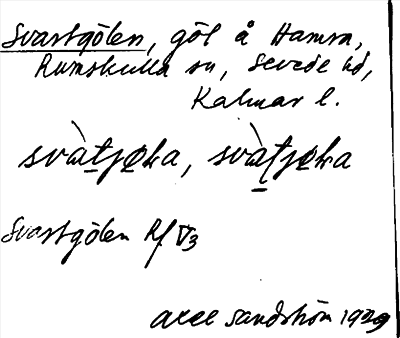 Svartgölen, göl å Hamra,
Rumskulla sn, Sevede hd,
Kalmar l.
svàt̲jø̨ka, svàt̲jø̨ka
Svartgölen Rf V3
Axel Sandström 1929